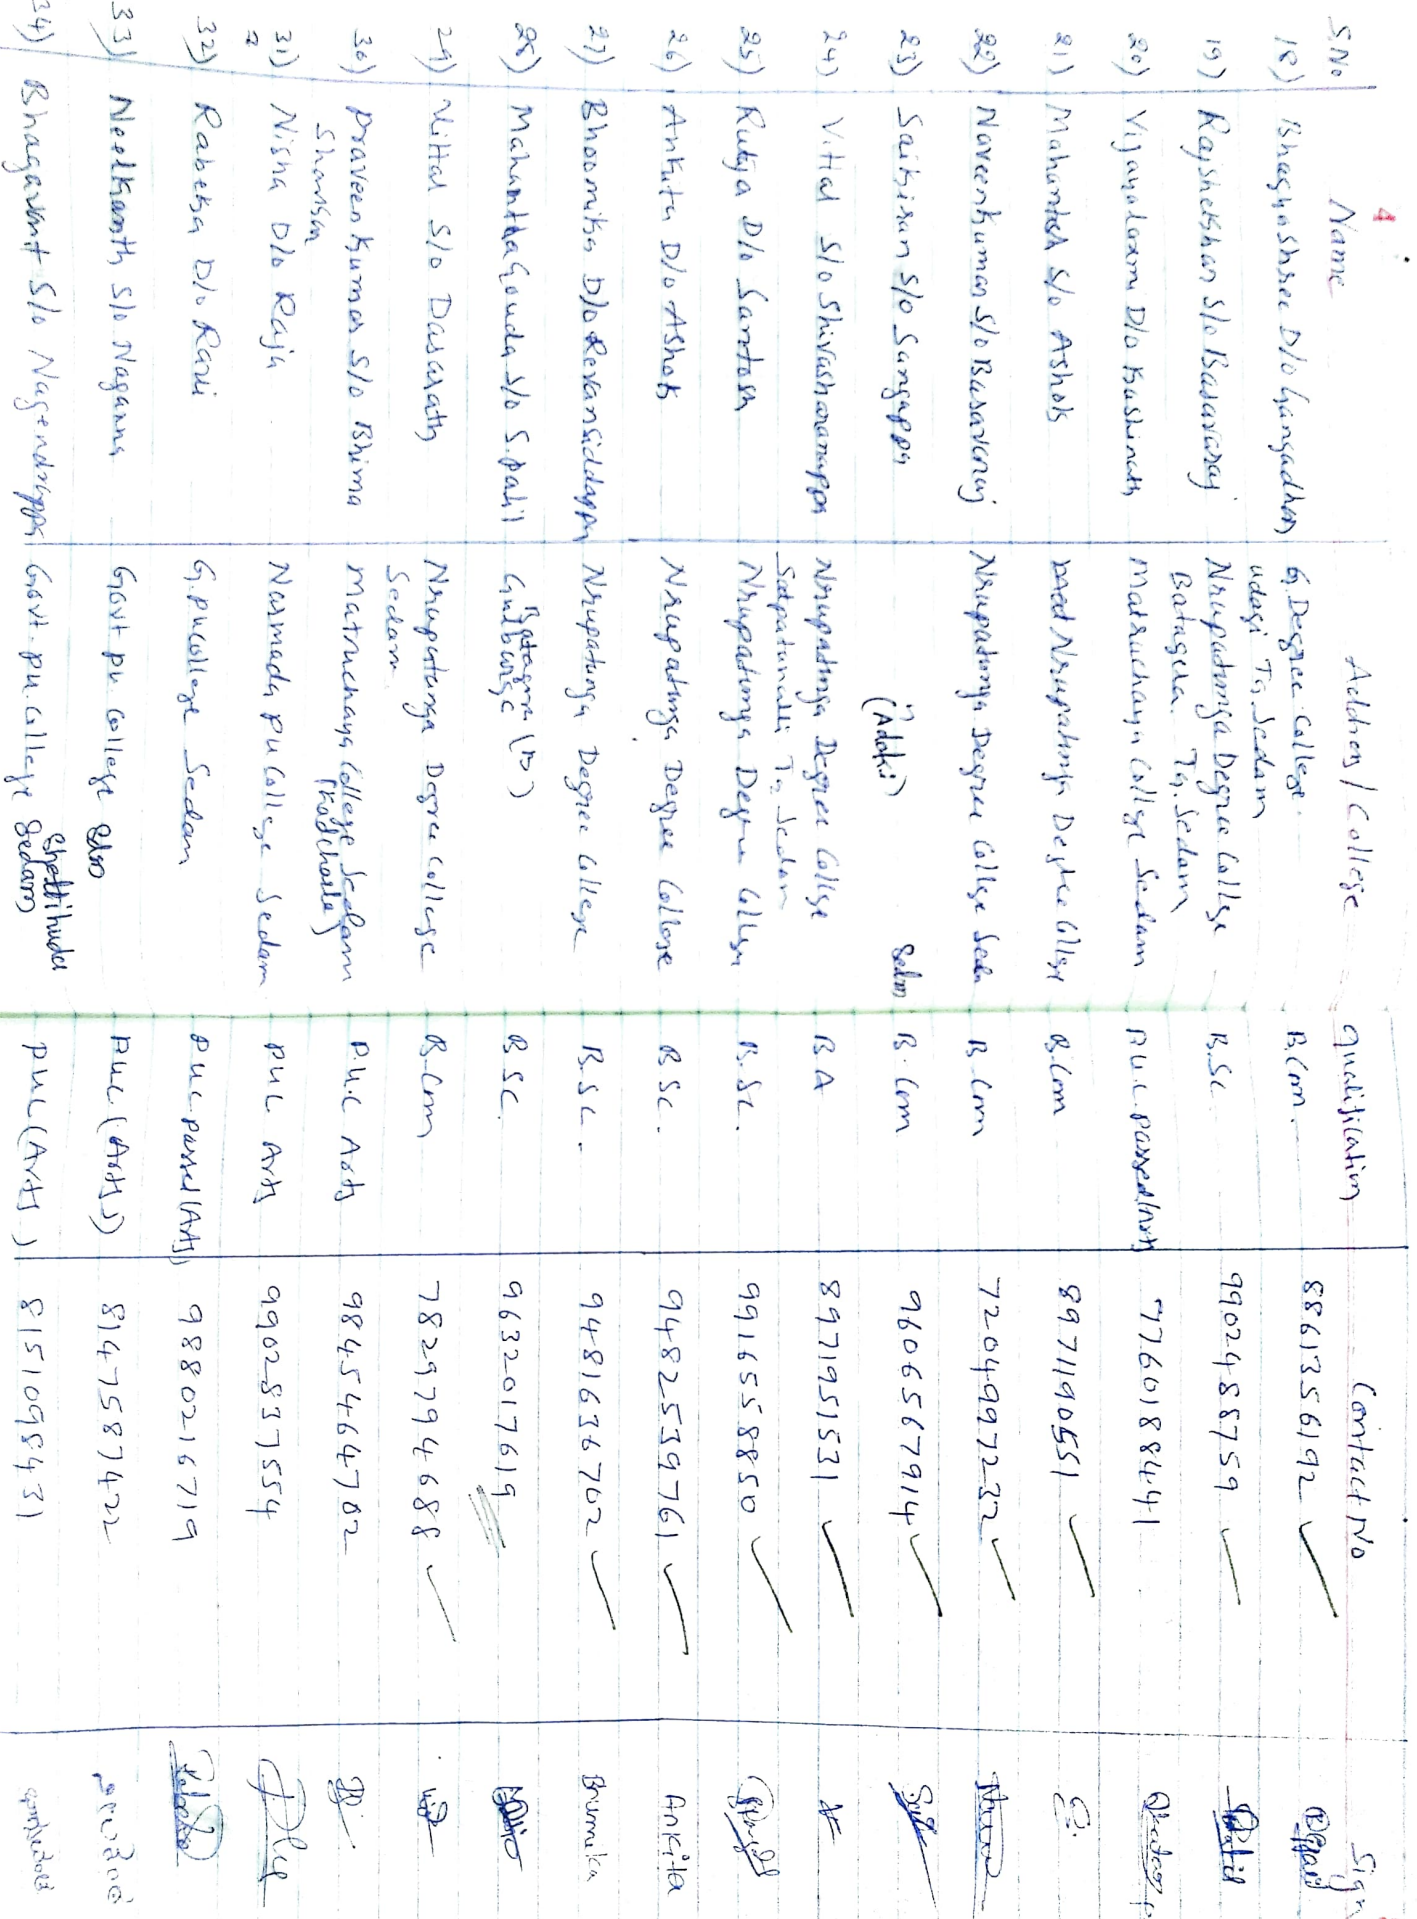 4
S No Name Address / College qualification Contact No Sign
18) Bhagyashree D/o Gangadhar G. Degree College. B.Com. 8861356192 ✓
udagi Tq. Sedam
19) Rajshekhar S/o Basavaraj Nrupatunga Degree College B.Sc 9902488759 ✓ Patil
Batagera. Tq. Sedam
20) Vijayalaxmi D/o Kashinath Matruchaya College Sedam P.U.C passed (Arts) 7760188441
21) Mahantesh S/o Ashok Nrupatunga Degree College B.Com 8971190551 ✓
22) Naveenkumar S/o Basavaraj Nrupatunga Degree College Sedm B.Com 7204997232 ✓
23) Saikiran S/o Sangappa (Adaki) Sedm B.Com 9606567914 ✓
24) Vittal S/o Shivasharanappa Nrupatunga Degree College B.A 8971951531 ✓
Tq. Sedam
25) Rutuja D/o Santosh Nrupatunga Degree College B.Sc. 9916558850 ✓
26) Ankita D/o Ashok Nrupatunga Degree College B Sc. 9482539761 ✓ Ankita
27) Bhoomika D/o Revansiddappa Nrupatunga Degree College B.Sc. 9481636702 ✓ Brumika
28) Mahantha Gouda S/o S. patil Gulbarga B.Sc. 9632017619
29) Vittal S/o Dasarath Nrupatunga Degree College B.Com 7829794688 ✓
Sedam
30) Praveen Kumar S/o Bhima Matruchaya College Sedam P.U.C Arts 9845464702
Shankar (Kadcharla)
31) Nisha D/o Raja Narmada PU College Sedam PUC Arts 9902837554
32) Rabeka D/o Ravi G. PU College Sedam PUC passed (Arts) 9880216719
33) Neelkanth S/o Naganna Govt pu college Sdm PUC (Arts) 8147587422
34) Bhagavant S/o Nagendrappa Govt. pu college Sedam PUC (Arts) 8151098431